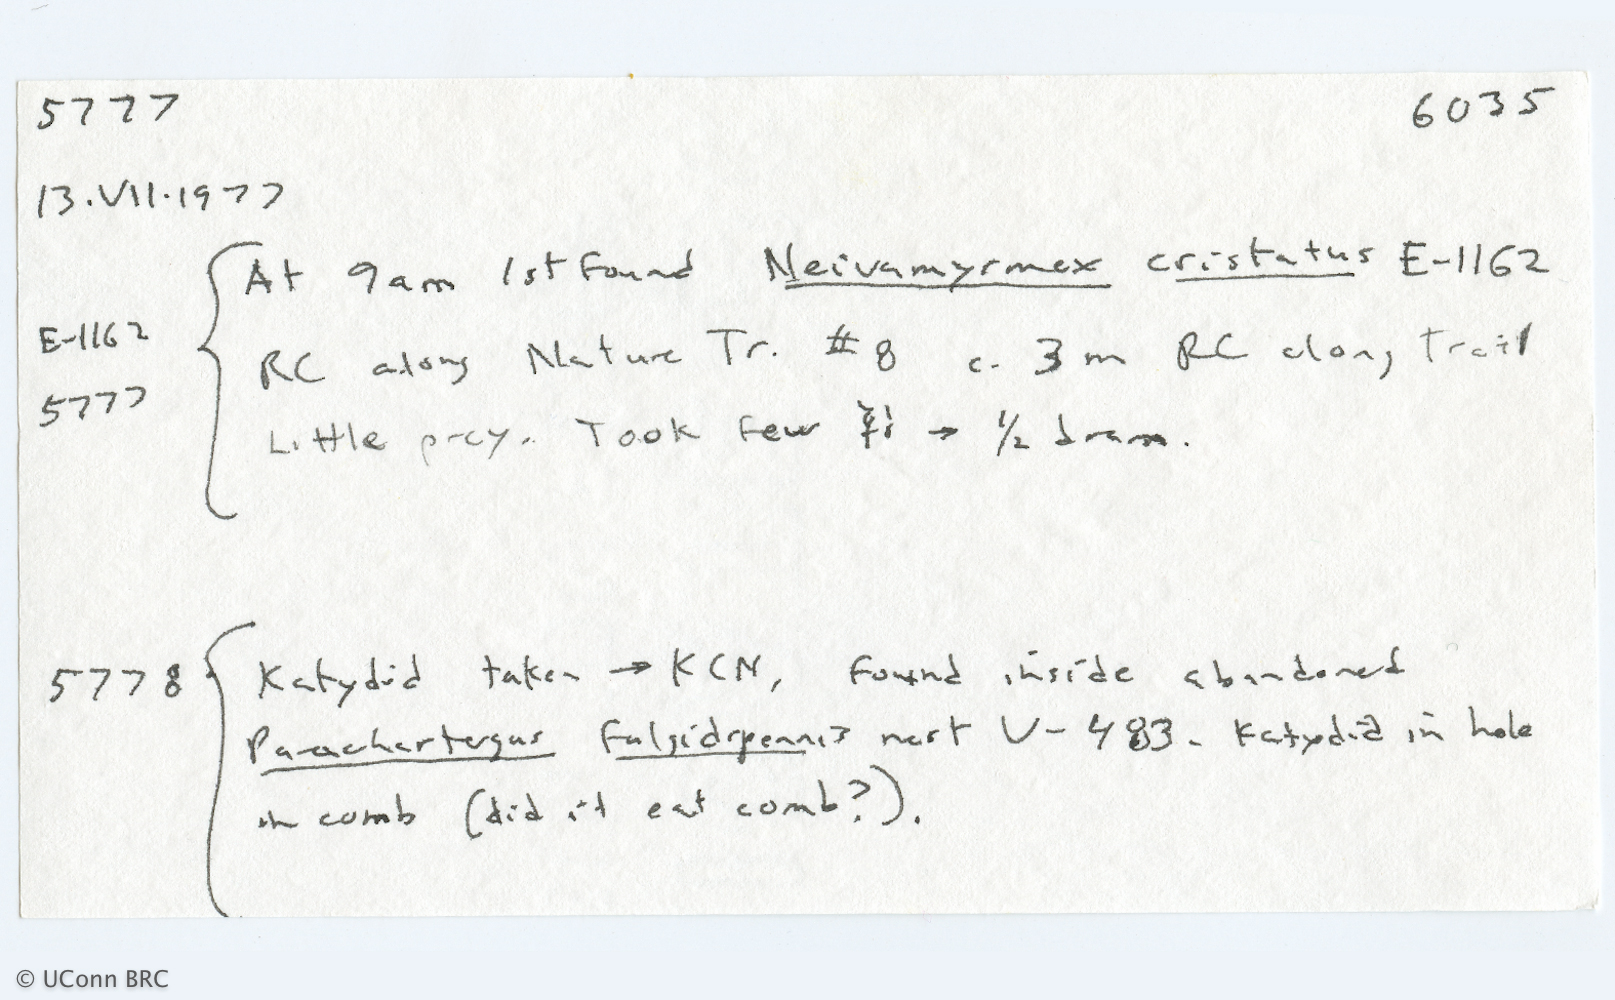 5777 6035
13.VII.1977
At 9am 1st Found Neivamyrmex cristatus E-1162
E-1162 RC along Nature Tr. #8 c. 3 m RC along Trail
5777 Little prey. Took Few → 1/2 dram.
5778 Katydid taken → KCN, Found inside abandoned
Parachartergus Fulgidipennis nest U-483. Katydid in hole
in comb (did it eat comb?).
© UConn BRC